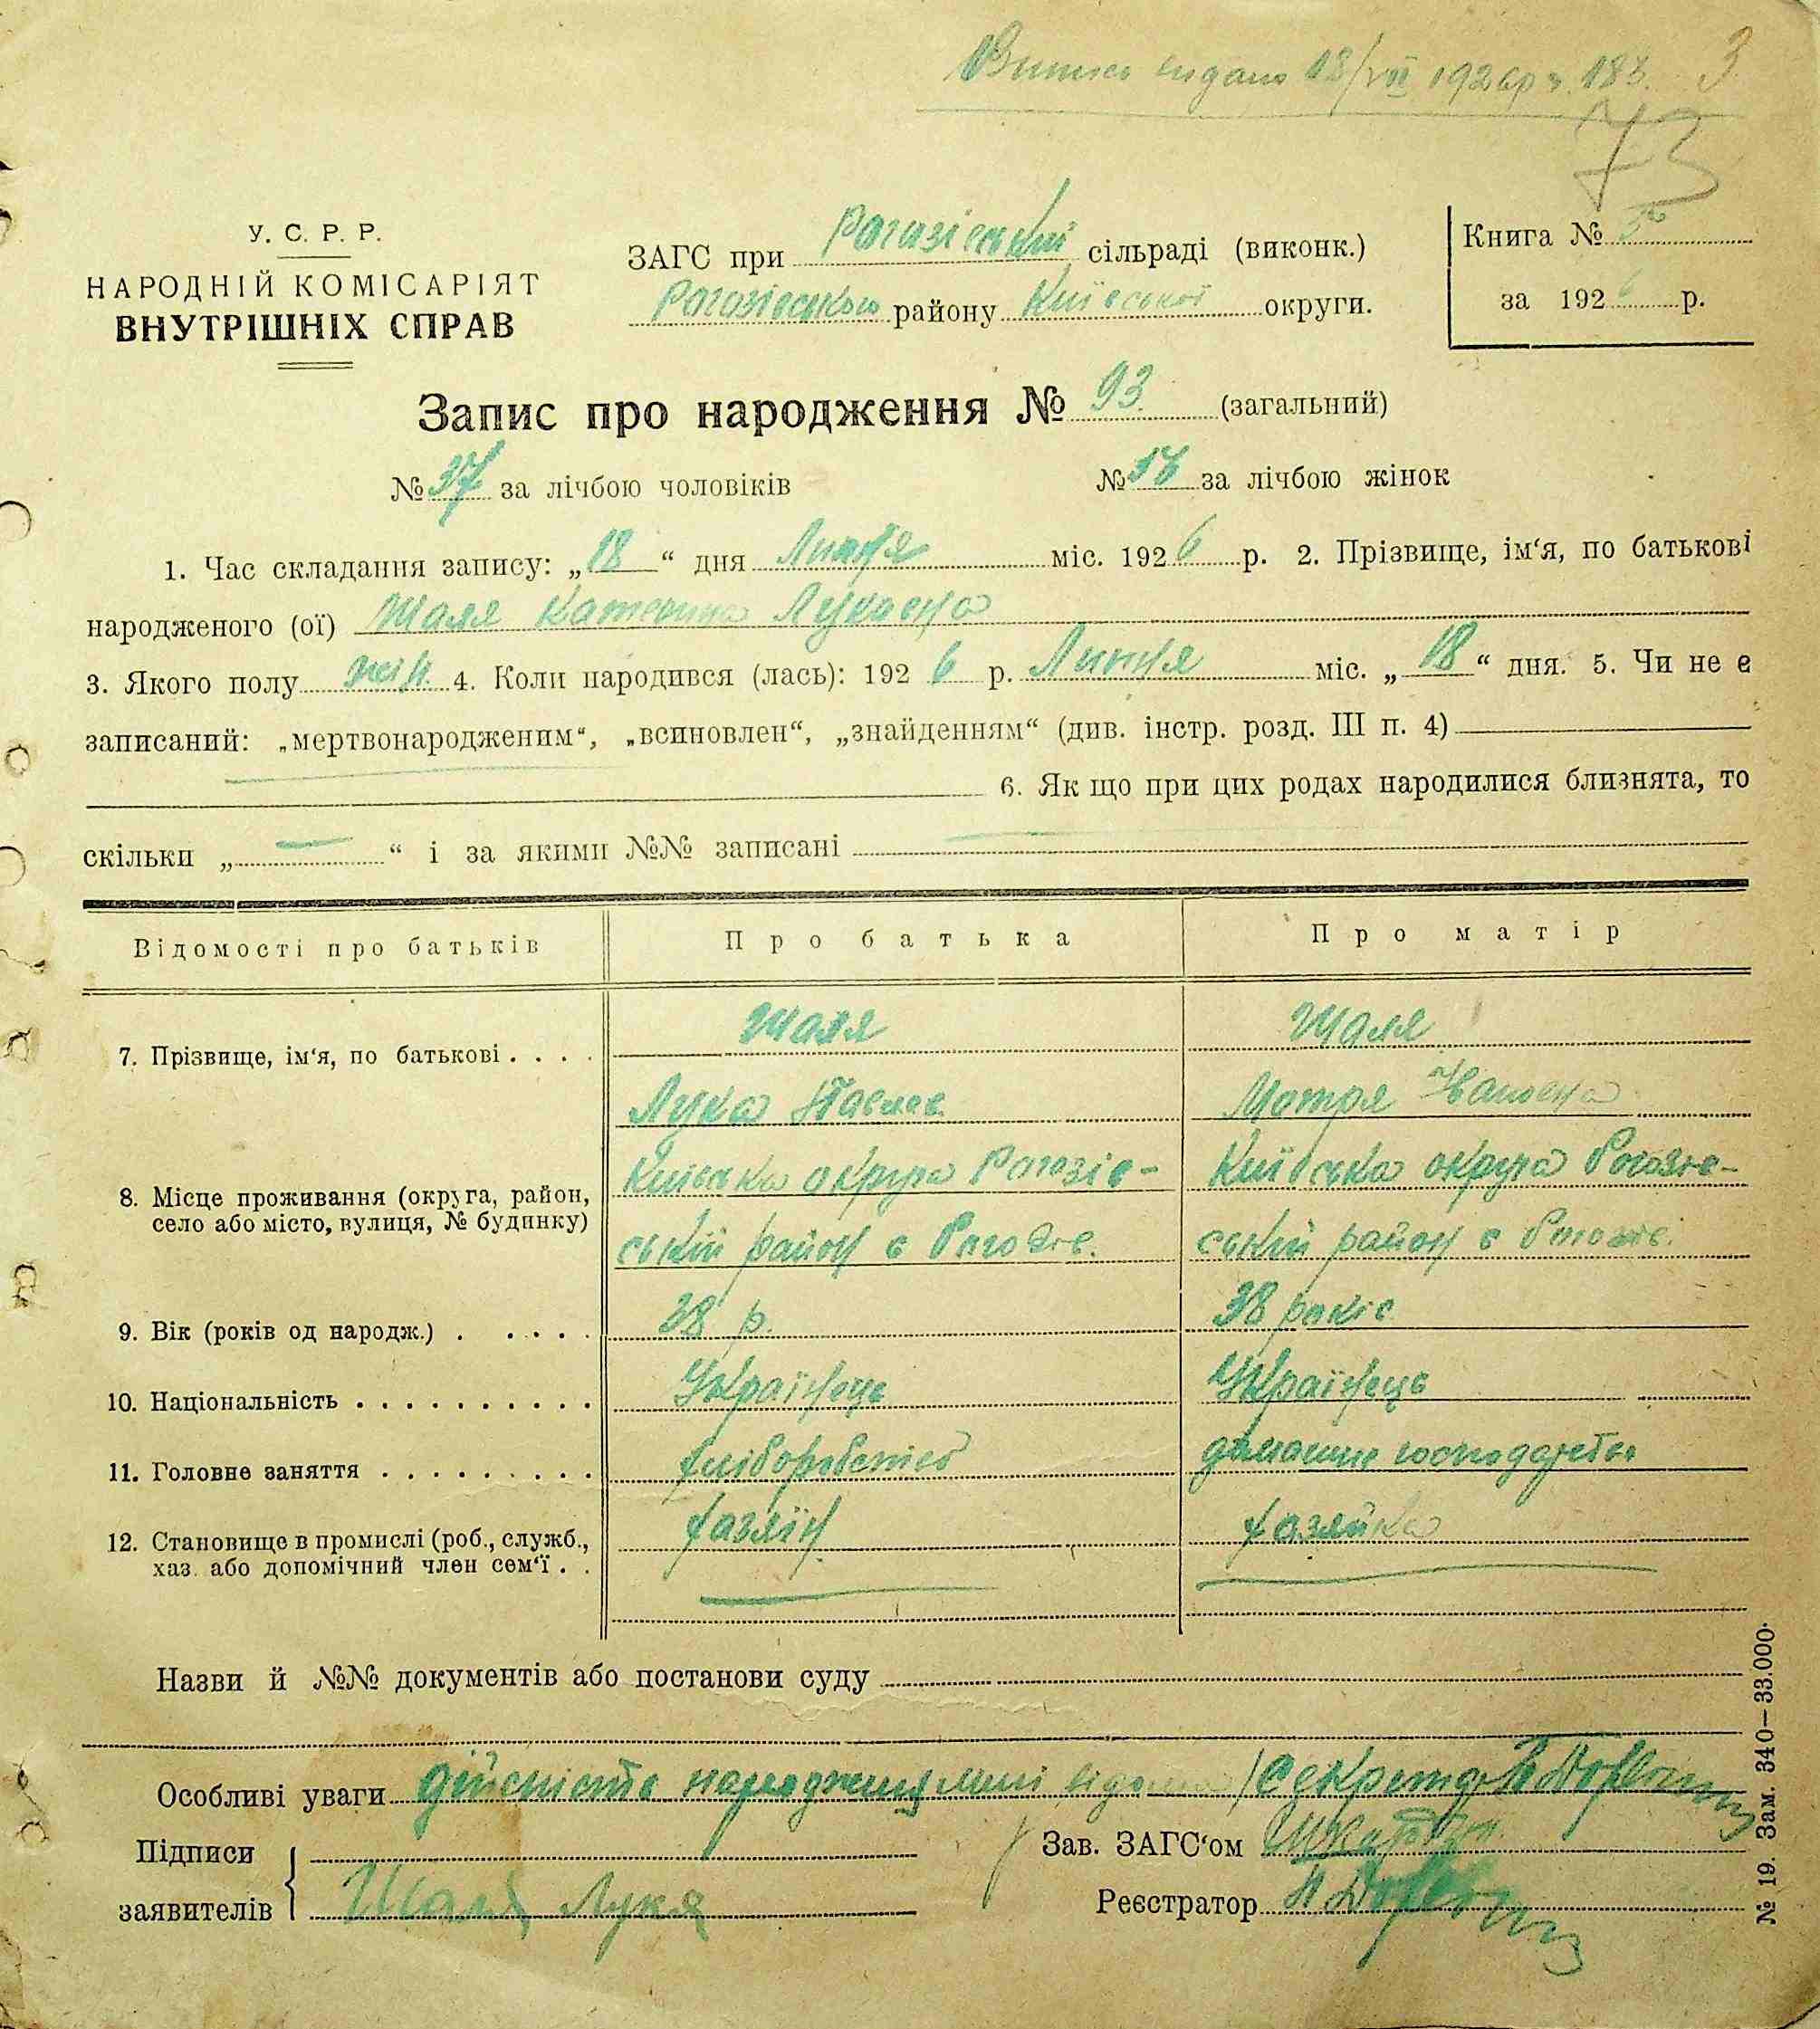 Випись видано 18/VII 1926 р з. 183. 3
73
У. С. Р. Р.
НАРОДНІЙ КОМІСАРІЯТ
ВНУТРІШНІХ СПРАВ
ЗАГС при Рогозівській сільраді (виконк.)
Рогозівського району Київської округи.
Книга № 5
за 1926 р.
Запис про народження № 93 (загальний)
№ 37 за лічбою чоловіків № за лічбою жінок
1. Час складання запису: „18“ дня Липня міс. 1926 р. 2. Прізвище, ім‘я, по батькові
народженого (ої) Шаля Катерина Лукасна
3. Якого полу жін. 4. Коли народився (лась): 1926 р. Липня міс. „18“ дня. 5. Чи не є
записаний: „мертвонародженим“, „всиновлен“, „знайденням“ (див. інстр. розд. III п. 4)
6. Як що при цих родах народилися близнята, то
скільки „ — “ і за якими №№ записані —
Відомості про батьків Про батька Про матір
7. Прізвище, ім‘я, по батькові . . . . Шаля Шаля
Лука Павлов. Мотря Івановна
8. Місце проживання (округа, район, Київська округа Рогозів- Київська округа Рогозів-
село або місто, вулиця, № будинку) ський район с Рогозів. ський район с Рогозів.
9. Вік (років од народж.) . . . . . 38 р. 38 років
10. Національність . . . . . . . . . . Українець Українець
11. Головне заняття . . . . . . . . . хліборобство домашне господарство
12. Становище в промислі (роб., служб., хазяїн хазяйка
хаз. або допомічний член сем‘ї . .
Назви й №№ документів або постанови суду
Особливі уваги дійсність народження мині відома / Секретар
Підписи
заявителів Шаля Лука
Зав. ЗАГС‘ом
Реєстратор
№ 19. Зам. 340—33.000.